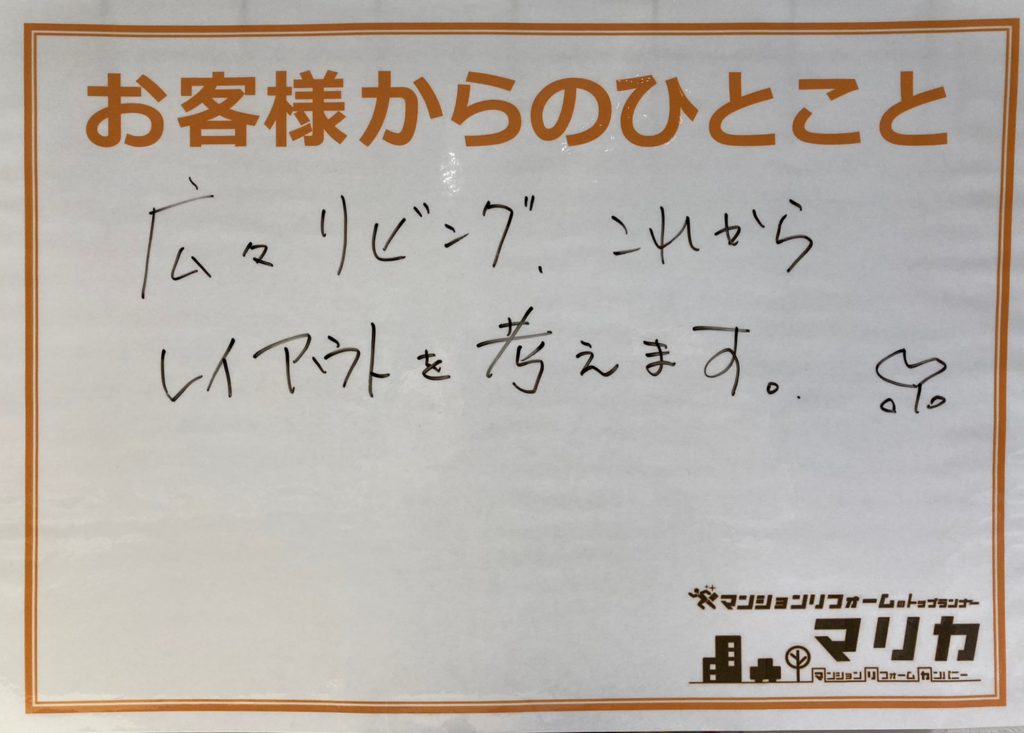 お客様からのひとこと
広々リビング、これから
レイアウトを考えます。
マンションリフォームのトップランナー
マリカ
マンションリフォームカンパニー